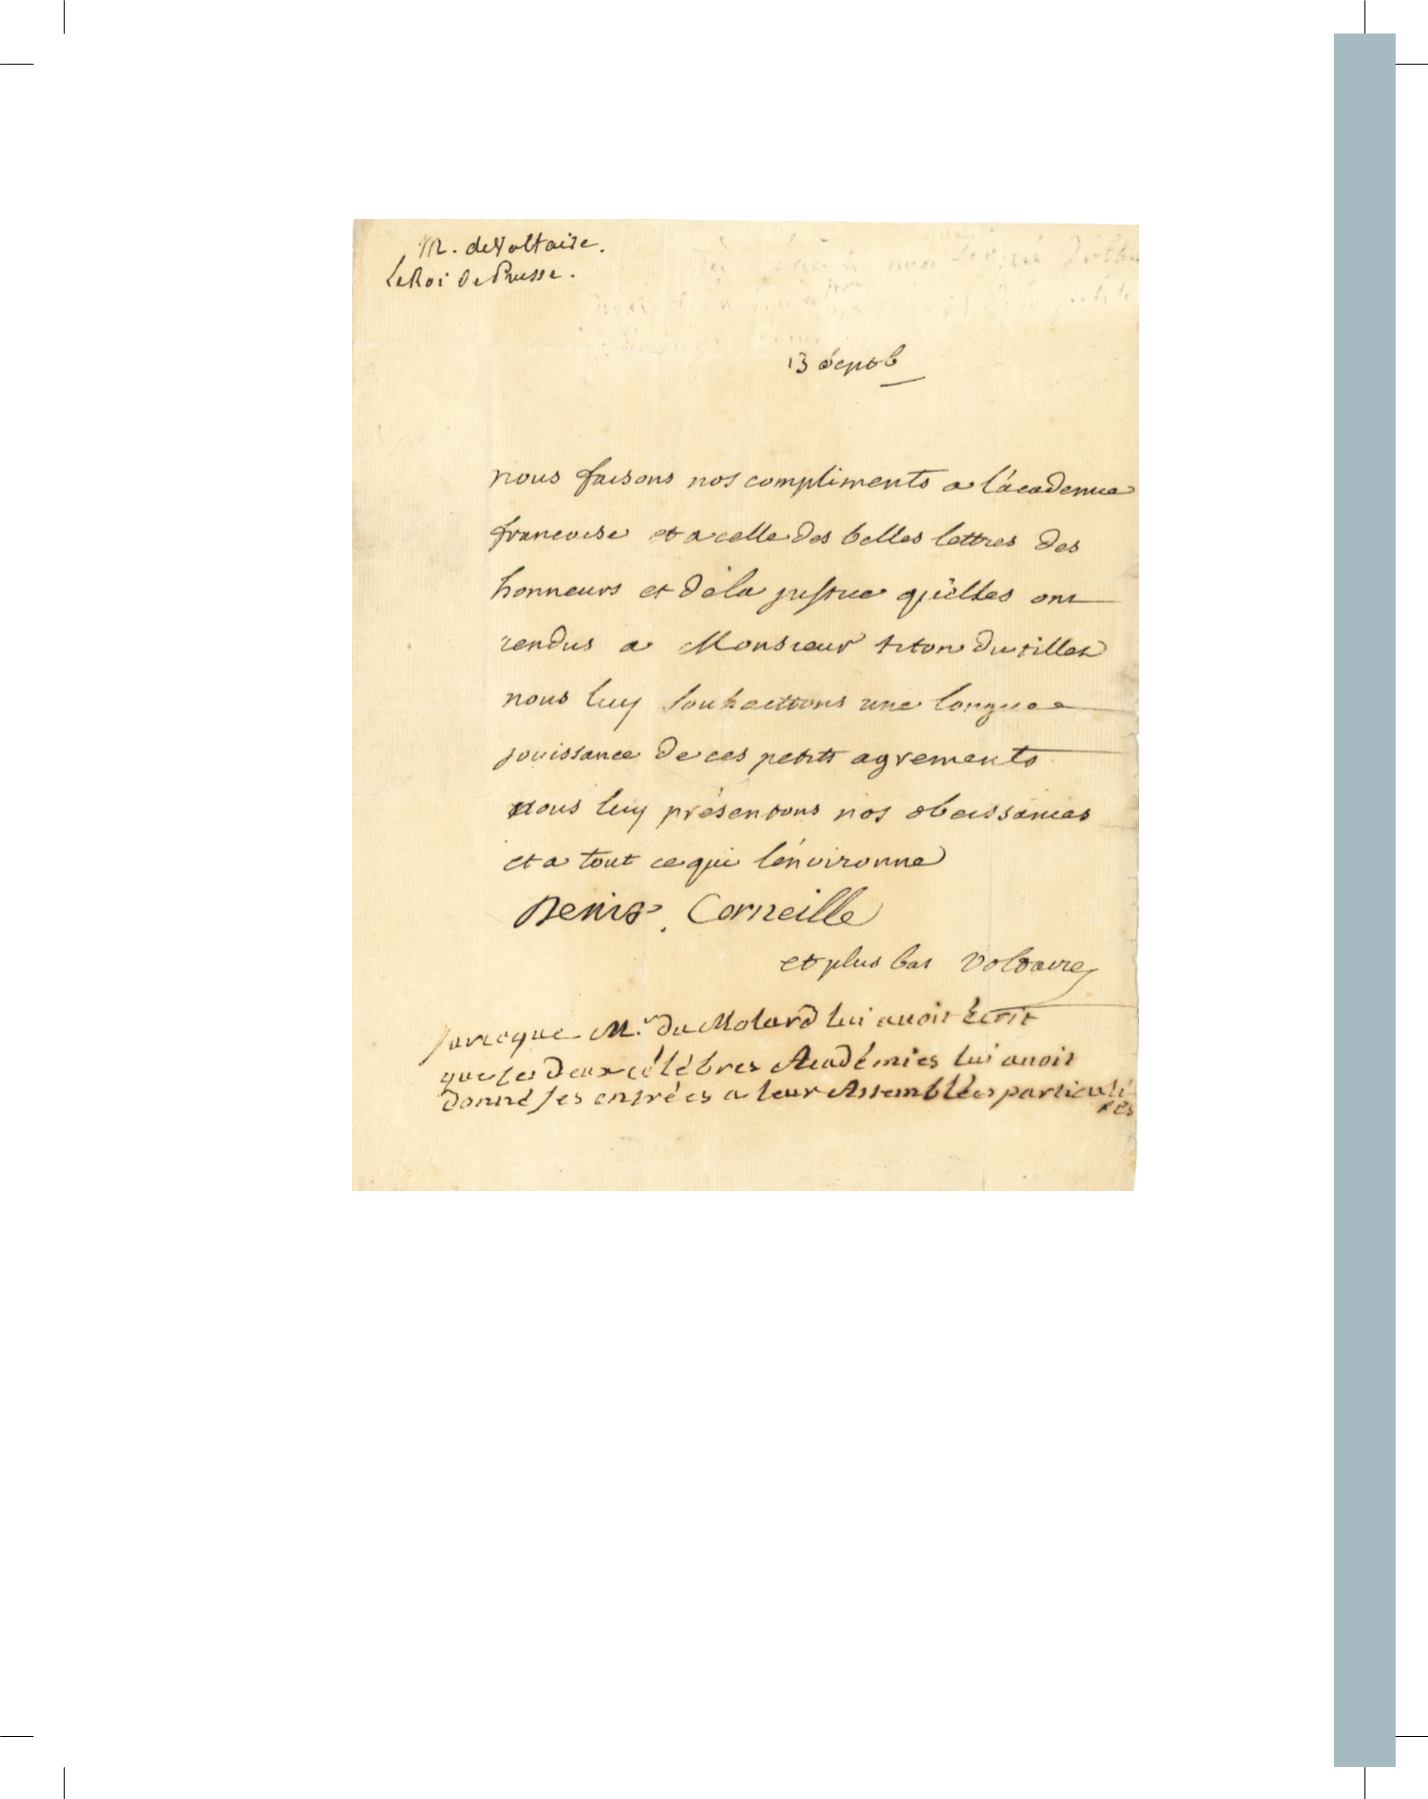 M. de Voltaire.
Le Roi de Prusse.
13
nous faisons nos compliments a l'academie
francoise et a celle des belles lettres des
honneurs et de la justice qu'elles ont
rendus a Monsieur titon du tillet
nous luy souhaittons une longue
jouissance de ces petits agrements
nous luy présentons nos obeissances
et a tout ce qui l'environne
Denis. Corneille
et plus bas Voltaire
parceque Mr. du Molard lui avoit écrit
que ses deux célébres Académies lui avoit
donné ses entrées a leur Assemblées particuli
res